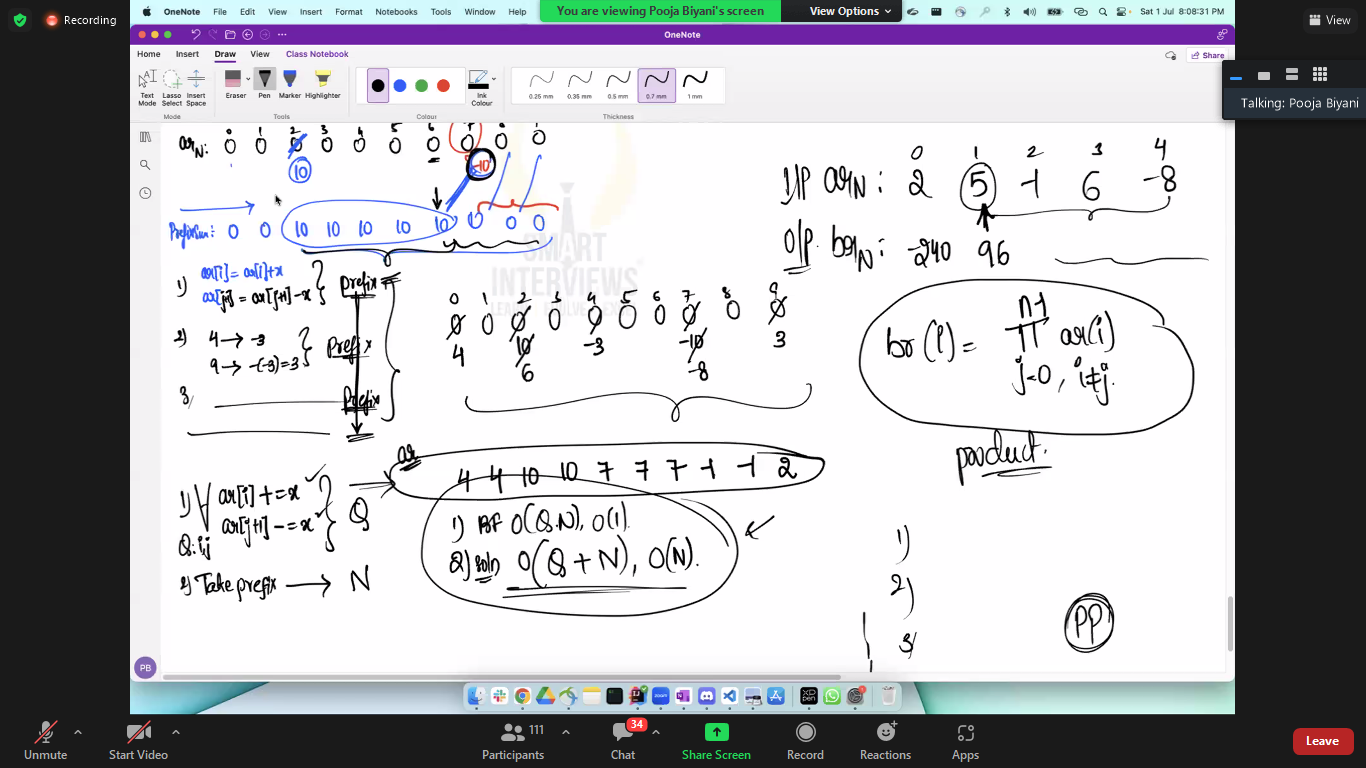 Recording
OneNote File Edit View Insert Format Notebooks Tools Window Help
You are viewing Pooja Biyani's screen
View Options
Sat 1 Jul 8:08:31 PM
View
OneNote
Home Insert Draw View Class Notebook
Share
Text Mode
Lasso Select
Insert Space
Eraser Pen Marker Highlighter
Ink Colour
0.25 mm 0.35 mm 0.5 mm 0.7 mm 1 mm
Mode Tools Colour Thickness
Talking: Pooja Biyani
0 1 2 3 4 5 6 7 8 9
arN: 0 0 0 0 0 0 0 0 0 0
10 -10
PrefixSum: 0 0 10 10 10 10 10 10 0 0
SMART INTERVIEWS
1) ar[i] = ar[i]+x
ar[j+1] = ar[j+1]-x
Prefix
2) 4 → -3
9 → -(-3)=3
Prefix
3,
Prefix
0 1 2 3 4 5 6 7 8 9
0 0 0 0 0 0 0 0 0 0
4 10 -3 -10 3
6 -8
ar
4 4 10 10 7 7 7 -1 -1 2
1) ∀ ar[i] += x
Q: i,j ar[j+1] -= x
Q
2) Take prefix → N
1) BF O(Q.N), O(1).
2) soln O(Q + N), O(N).
0 1 2 3 4
I/P arN: 2 5 -1 6 -8
O/P. brN: -240 96
br(i) = n-1 ∏ ar(i)
j=0, i≠j.
product.
1)
2)
3)
PP
PB
Unmute
Start Video
111
Participants
34
Chat
Share Screen
Record
Reactions
Apps
Leave